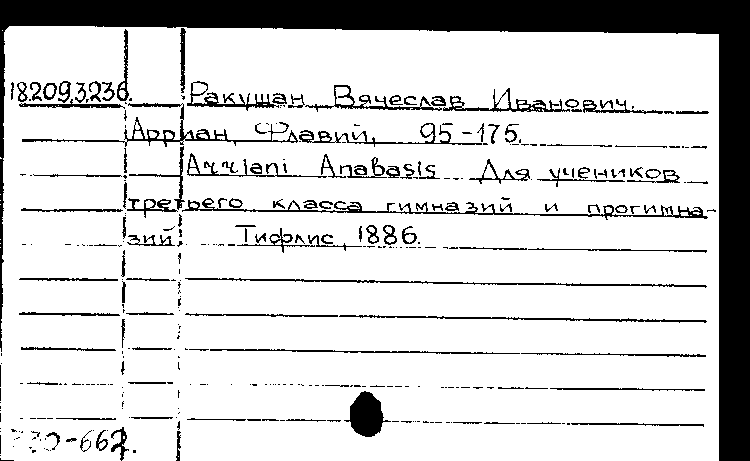 18.209.3.236. Ракушан, Вячеслав Иванович.
Арриан, Флавий, 95-175.
Arriani Anabasis Для учеников
третьего класса гимназий и прогимна-
зий. Тифлис, 1886.
-662.